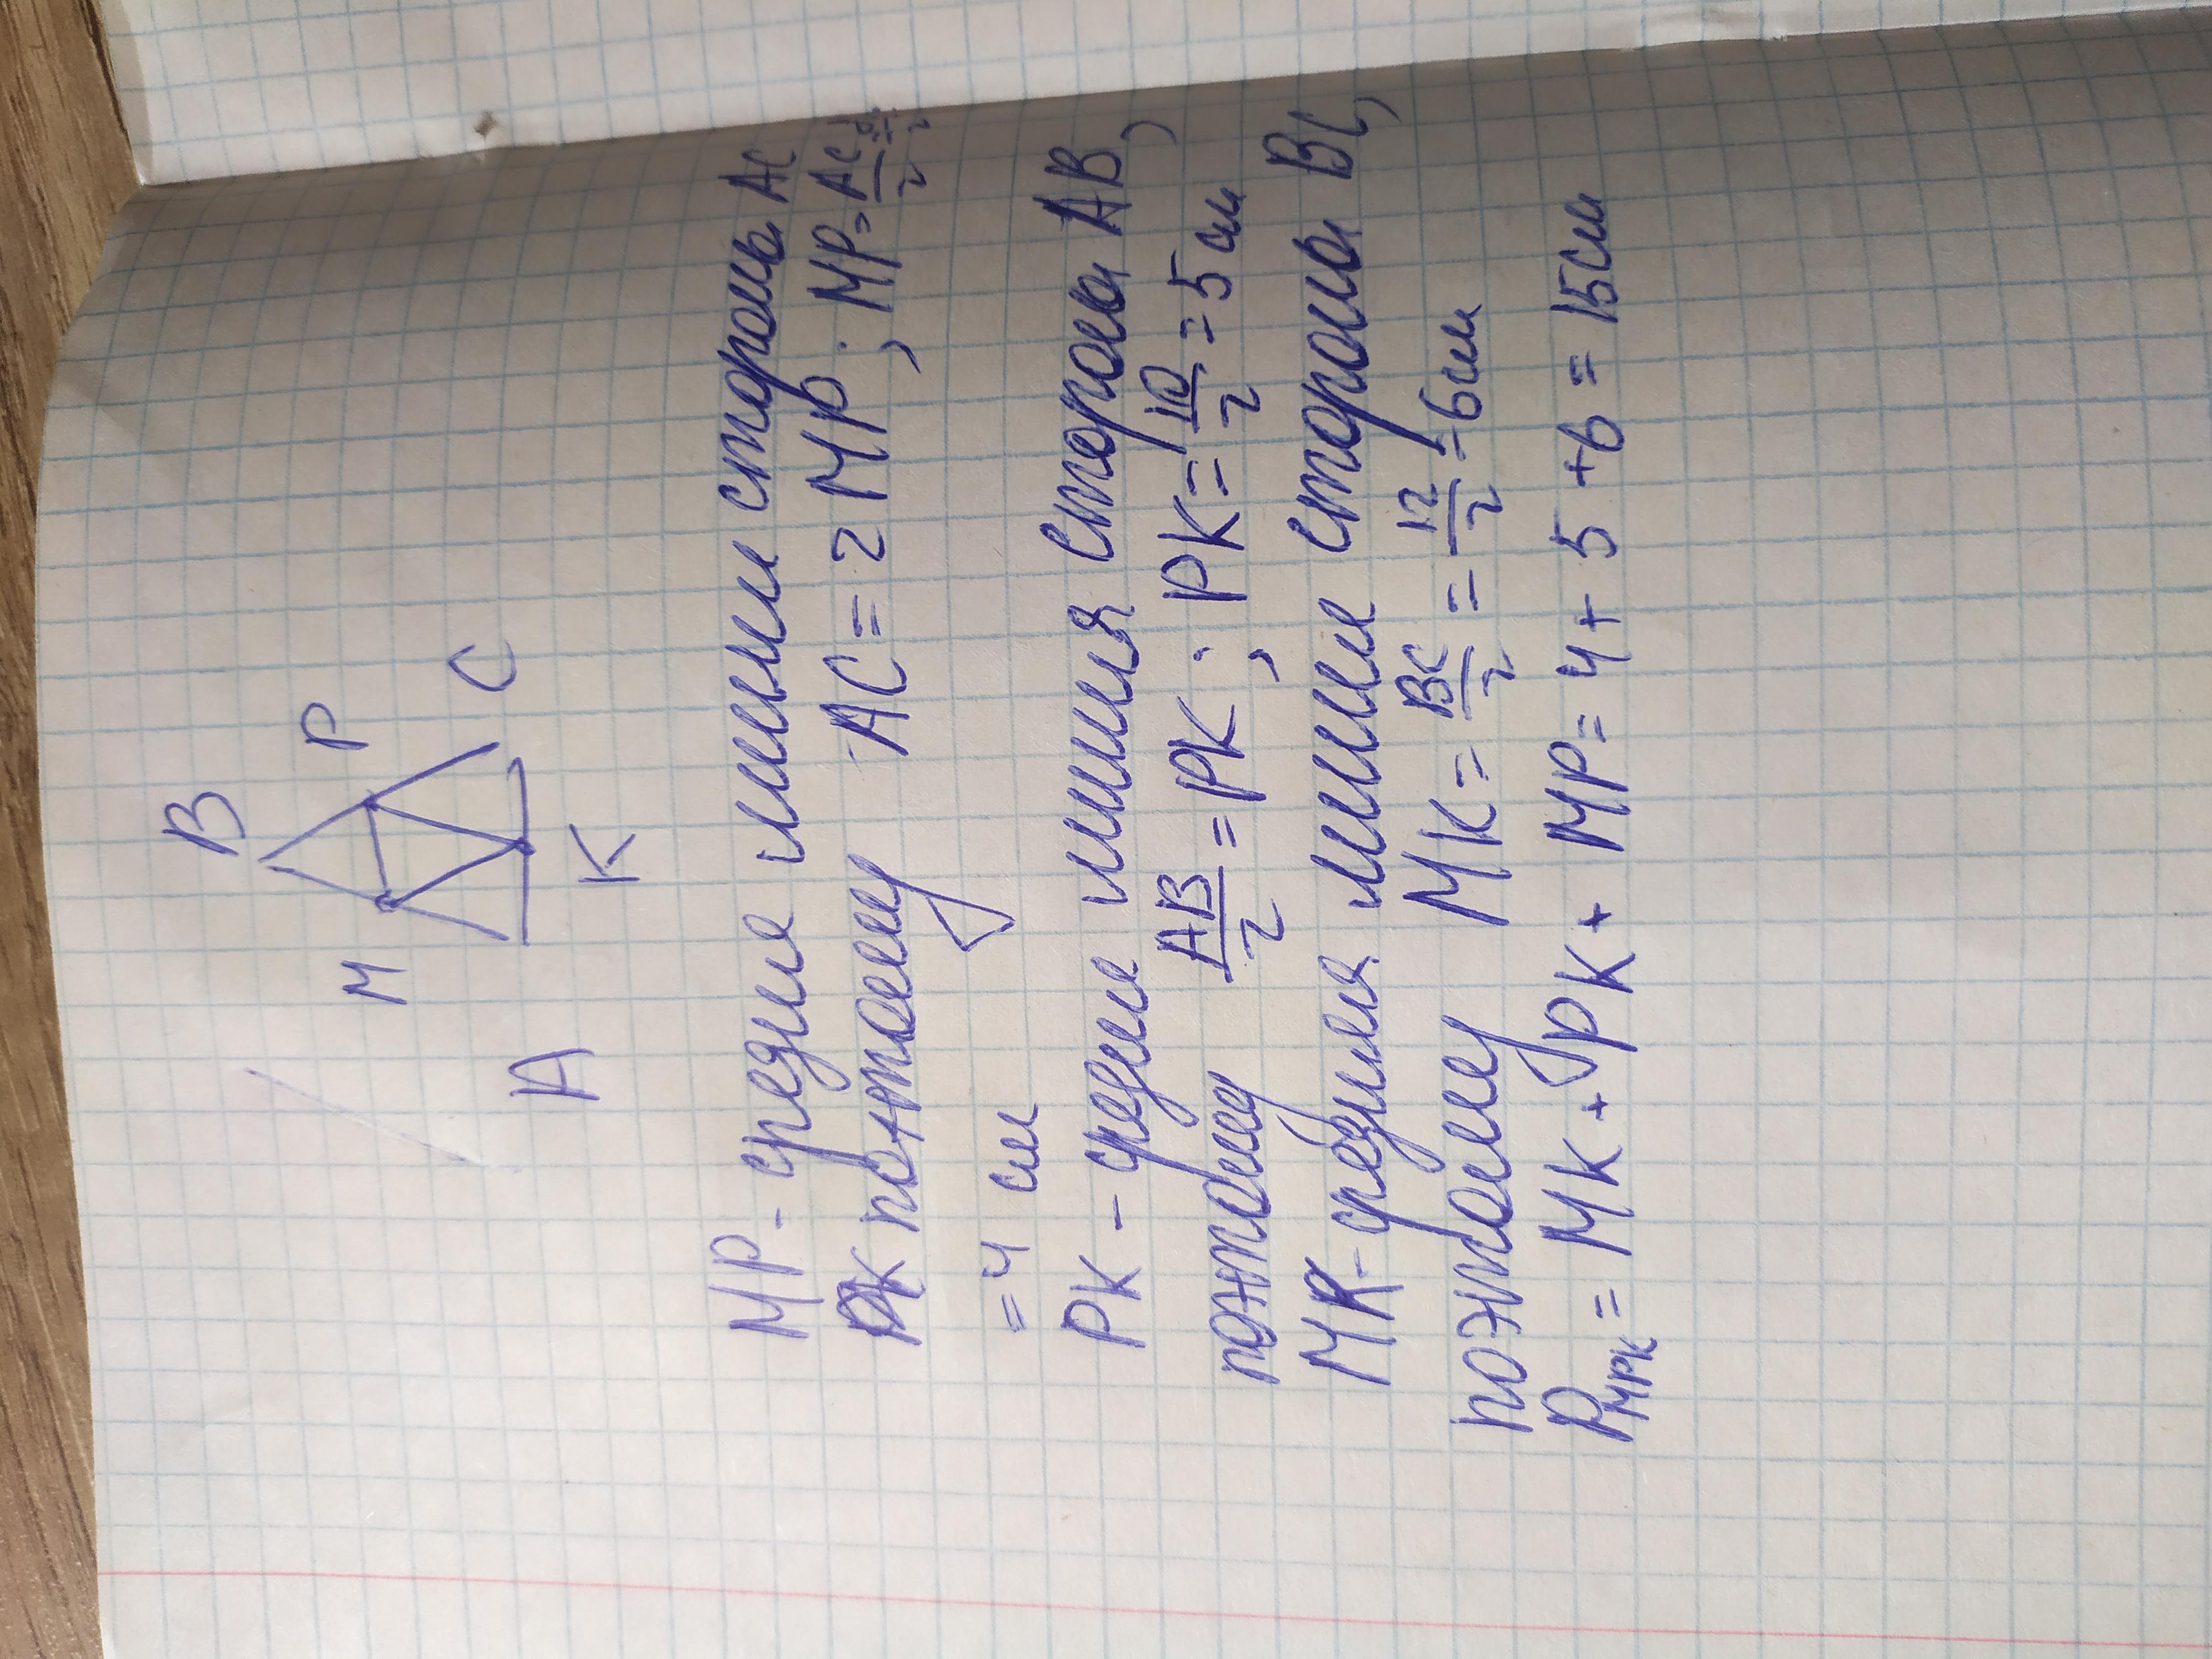 B
M P
A C
K
MP - средне линии стороны AC
поэтому AC = 2 MP ; MP = AC/2 =
= 4 см
PK - средни линия стороны AB,
поэтому AB/2 = PK ; PK = 10/2 = 5 см
MK - средняя линие стороны BC,
поэтому MK = BC/2 = 12/2 = 6 см
P MPK = MK + PK + MP = 4 + 5 + 6 = 15 см